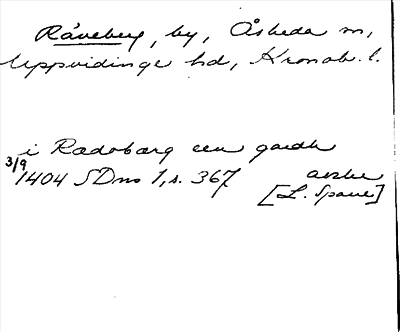 Råveberg, by, Åsheda sn,
Uppvidinge hd, Kronob. l.
i Rædobærg een gardh
3/9 1404 SDns 1, s. 367 avskr
[L. Spaue]